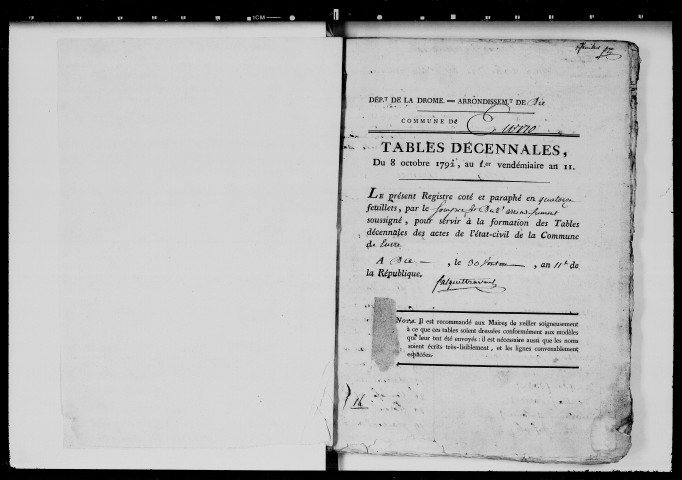 DÉP.T DE LA DROME. — ARRONDISSEM.T DE Die
COMMUNE DE
TABLES DÉCENNALES,
Du 8 octobre 1792, au 1.er vendémiaire an 11.
LE présent Registre coté et paraphé en quatorze
feuillets, par le
soussigné, pour servir à la formation des Tables
décennales des actes de l'état-civil de la Commune
de
A Die , le 30 , an 11e de
la République.
NOTA Il est recommandé aux Maires de veiller soigneusement
à ce que ces tables soient dressées conformément aux modèles
qui leur ont été envoyés : il est nécessaire aussi que les noms
soient écrits très-lisiblement, et les lignes convenablement
espacées.
14
1CM